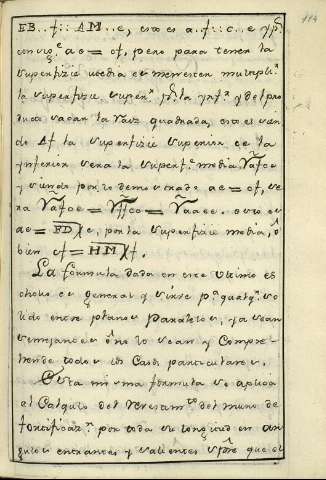 114
EB . . f :: AM . . e, esto es a . f :: c . e y pr.
ae = cf, pero para tener la
superfizie media es menester multipl.
la superfizie super.r por la ynf.r y del pro
ducto sacar la raiz quadrada, esto es sien
do Af la superfizie superior ce la
ynferior sera la superf.e media √afce
y siendo por lo demostrado ae = cf, se
ra √afce = √ffcc = √aaee. esto es
ae = FD × e, por la superfizie media, o
bien cf = HM × f.
La formula dada en este ultimo es
general y sirve p.a qualq.r so
lido entre planos Paralelos, ya sean
semejantes o no lo sean y Compre
hende todos los Casos particulares.
Esta misma formula se aplica
al Calculo del del muro de
fortificaz.n por toda su longitud en an
gulos entrantes y salientes que el